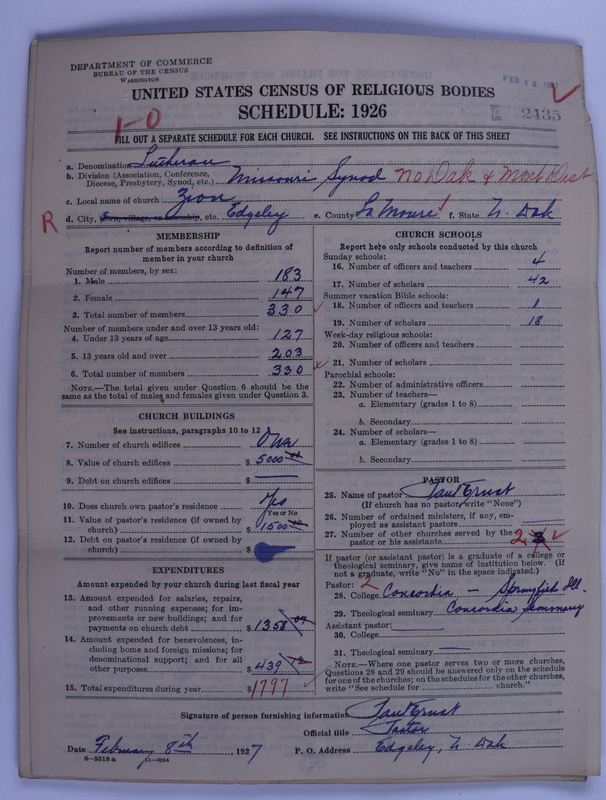 DEPARTMENT OF COMMERCE
BUREAU OF THE CENSUS
WASHINGTON
FEB 12
UNITED STATES CENSUS OF RELIGIOUS BODIES
SCHEDULE: 1926
2435
1-0
FILL OUT A SEPARATE SCHEDULE FOR EACH CHURCH. SEE INSTRUCTIONS ON THE BACK OF THIS SHEET
a. Denomination Lutheran
b. Division (Association, Conference, Diocese, Presbytery, Synod, etc.) Missouri Synod No Dak & Mont Dist
c. Local name of church Zion
R d. City, town, village, or township, etc. Edgeley e. County La Moure f. State N. Dak
MEMBERSHIP
Report number of members according to definition of
member in your church
Number of members, by sex:
1. Male 183
2. Female 147
3. Total number of members 330
Number of members under and over 13 years old:
4. Under 13 years of age 127
5. 13 years old and over 203
6. Total number of members 330
NOTE.—The total given under Question 6 should be
same as the total of males and females given under Question 3.
CHURCH BUILDINGS
See instructions, paragraphs 10 to 12
7. Number of church edifices One
8. Value of church edifices $5000
9. Debt on church edifices $
10. Does church own pastor's residence Yes
Yes or No
11. Value of pastor's residence (if owned by
church) $1500
12. Debt on pastor's residence (if owned by
church) $
EXPENDITURES
Amount expended by your church during last fiscal year
13. Amount expended for salaries, repairs,
and other running expenses; for im-
provements or new buildings; and for
payments on church debt $1358
14. Amount expended for benevolences, in-
cluding home and foreign missions; for
denominational support; and for all
other purposes $439
15. Total expenditures during year $1797
CHURCH SCHOOLS
Report here only schools conducted by this church
Sunday schools:
16. Number of officers and teachers 4
17. Number of scholars 42
Summer vacation Bible schools:
18. Number of officers and teachers 1
19. Number of scholars 18
Week-day religious schools:
20. Number of officers and teachers
21. Number of scholars
Parochial schools:
22. Number of administrative officers
23. Number of teachers—
a. Elementary (grades 1 to 8)
b. Secondary
24. Number of scholars—
a. Elementary (grades 1 to 8)
b. Secondary
PASTOR
25. Name of pastor Paul Ernst
(If church has no pastor, write "None")
26. Number of ordained ministers, if any, em-
ployed as assistant pastors
27. Number of other churches served by the
pastor or his assistants 2
If pastor (or assistant pastor) is a graduate of a college or
theological seminary, give name of institution below. (If
not a graduate, write "No" in the space indicated.)
Pastor: 2
28. College Concordia — Springfield Ill.
29. Theological seminary Concordia Seminary
Assistant pastor:
30. College
31. Theological seminary
NOTE.—Where one pastor serves two or more churches,
Questions 28 and 29 should be answered only on the schedule
for one of the churches; on the schedules for the other churches,
write "See schedule for church."
Signature of person furnishing information Paul Ernst
Official title Pastor
Date February 8th, 1927 P. O. Address Edgeley, N. Dak
8-5518 a 11-9054